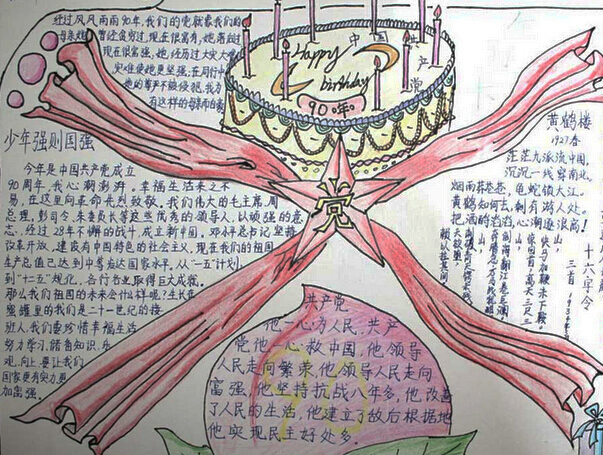 经过风风雨雨90年,我们的党就像我们的
现在很富强,她经历过大灾大难
灾难使她更坚强,在同行中
有这样的母亲而
中国共产党
Happy
birthday
90年
少年强则国强
今年是中国共产党成立
90周年,我心潮澎湃。幸福生活来之不
易,在这里向革命先烈致敬,我们伟大的毛主席,周
总理,彭司令,朱委员长等这些优秀的领导人,以顽强的意
志,经过28年不懈的战斗,成立新中国。邓小平总书记坚持
改革开放,建设有中国特色的社会主义,现在我们的祖国
生产总值已达到中等发达国家水平,从“一五”计划
到“十二五”规化,各行各业取得巨大成就。
那么我们祖国的未来会什样呢?生长在
蜜罐里的我们是二十一世纪的接
班人,我们要珍惜幸福生活
努力学习,储备知识,乐
观,向上,要让我们
国家更有实力,更
加富强。
党
黄鹤楼
1927春
茫茫九派流中国,
沉沉一线穿南北。
烟雨莽苍苍,龟蛇锁大江。
黄鹤知何去,剩有游人处。
把酒酹滔滔,心潮逐浪高!
十六字令
三首
山,
快马加鞭未下鞍。
惊回首,离天三尺三
山,
山,
共产党
他一心为人民,共产
党他一心救中国,他领导
人民走向繁荣,他领导人民走向
富强,他坚持抗战八年多,他改善
了人民的生活,他建立了敌后根据地
他实现民主好处多.